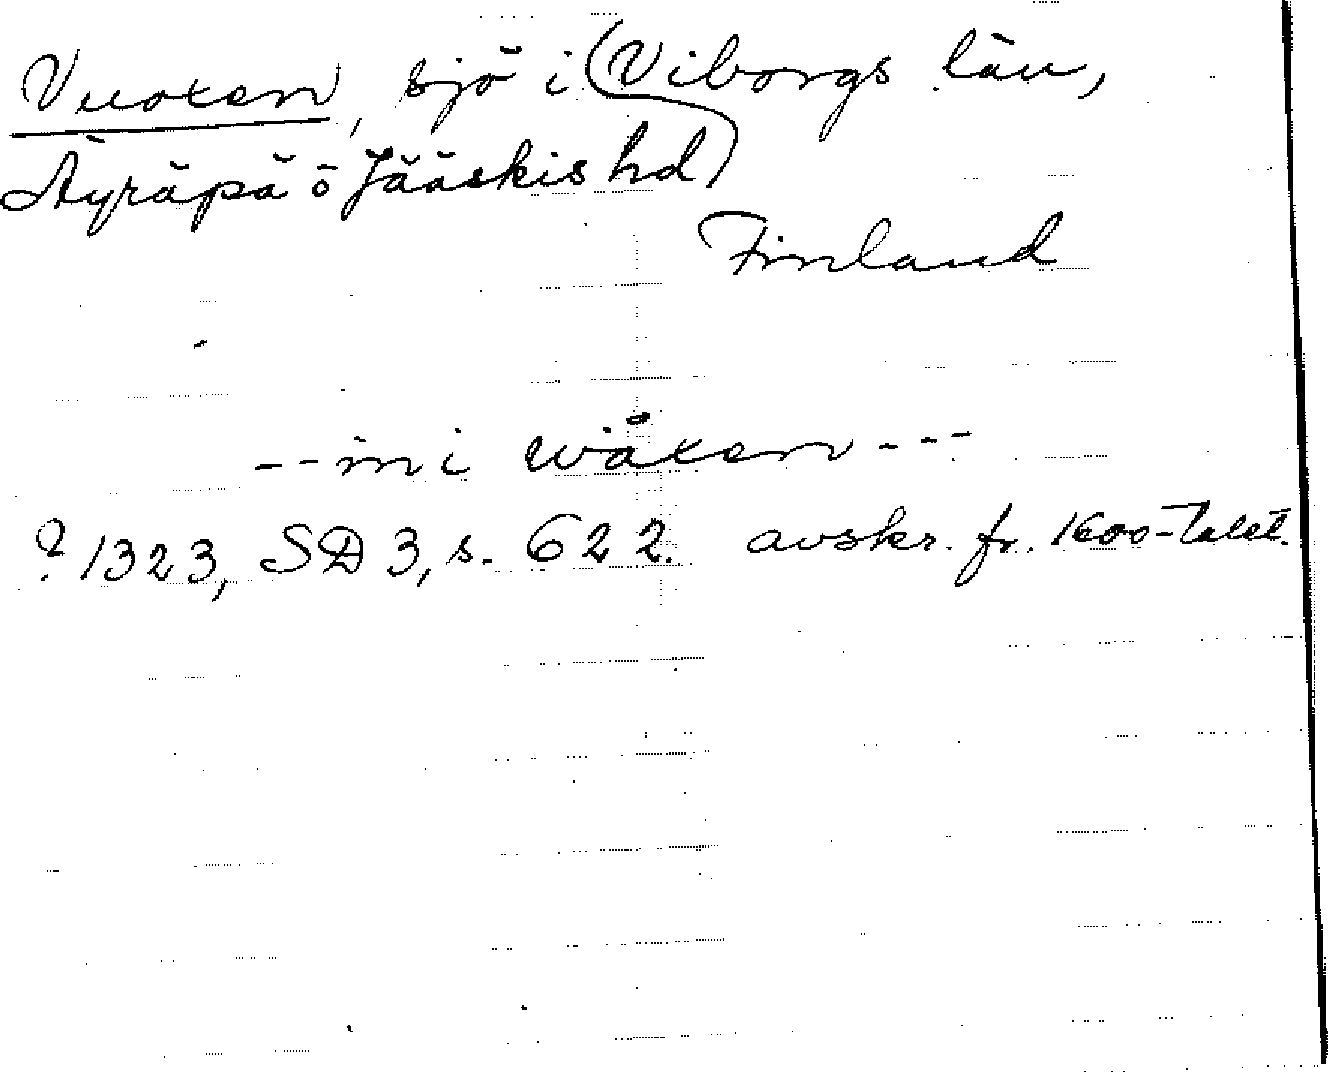 Vuoxen, sjö i (Viborgs län,
Äyräpä o Jääskis hd)
Finland
-- in i wåxen ---
? 1323, SD 3, s. 622. avskr. fr. 1600-talet.